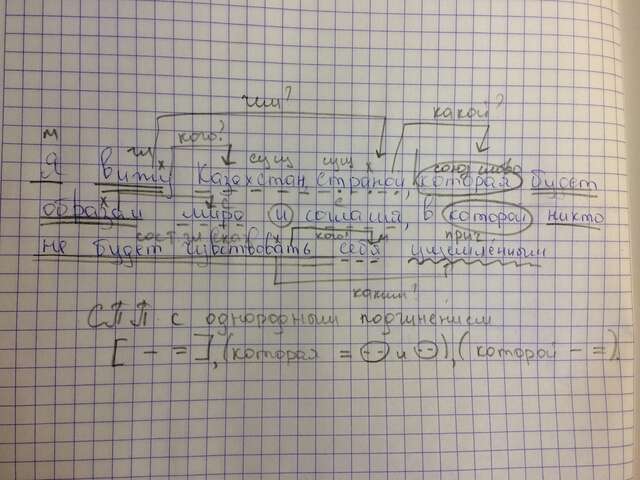 чем?
кого? какой?
м гл сущ сущ союз. слово
Я вижу Казахстан страной, которая будет
с с
образом мира и согласия, в которой никто
сост. гл. сказ. кого? м прич
не будет чувствовать себя ущемлённым
каким?
СПП с однородным подчинением
[ - = ], (которая = и ), ( которой - = ).